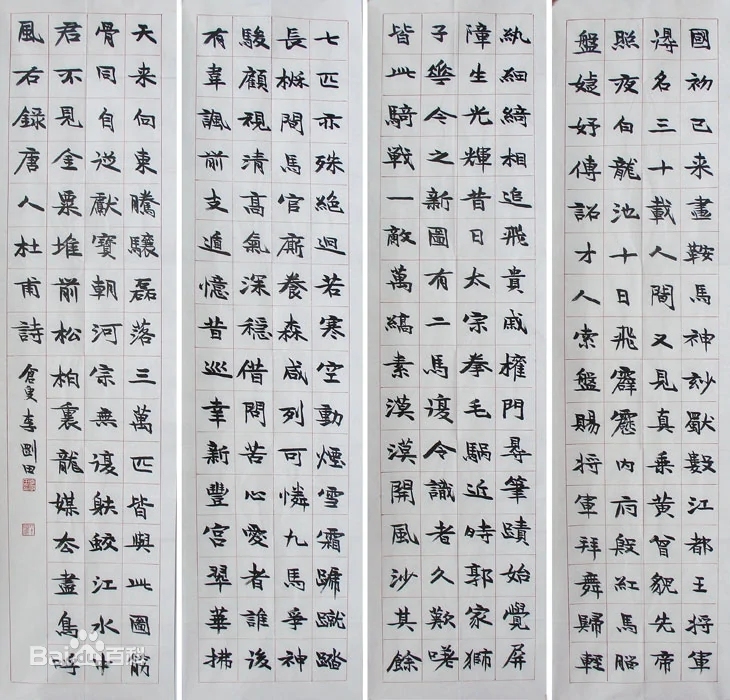 國初已来畫鞍馬神玅獨數江都王將軍
得名三十載人間又見真乗黄曾貌先帝
照夜白龍池十日飛霹靂内府殷紅馬腦
盤婕妤傳詔才人索盤賜將軍拜舞歸輕
紈細綺相追飛貴戚權門㝵筆蹟始覺屏
障生光輝昔日太宗拳毛騧近時郭家獅
子華今之新圖有二馬復令識者久歎嗟
皆此騎戰一敵萬縞素漠漠開風沙其餘
七匹亦殊絕迥若寒空動煙雪霜蹄蹴踏
長楸間馬官廝養森咸列可憐九馬爭神
駿顧視清高氣深穩借問苦心愛者誰後
有韋諷前支遁憶昔巡幸新豐宮翠華拂
天来向東騰驤磊落三萬匹皆與此圖筋
骨同自從獻寶朝河宗無復射蛟江水中
君不見金粟堆前松柏裏龍媒去盡鳥呼
風右録唐人杜甫詩 倉叟李剛田
Baidu百科